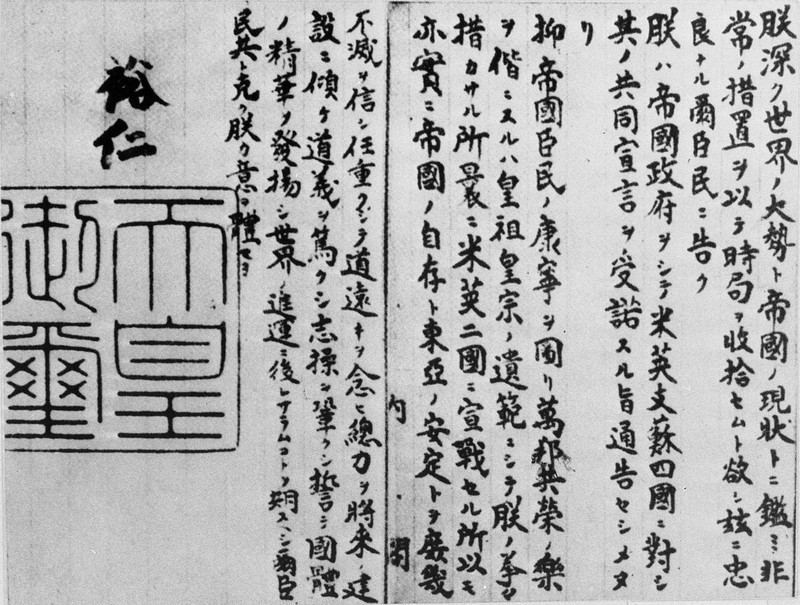 朕深ク世界ノ大勢ト帝國ノ現狀トニ鑑ミ非
常ノ措置ヲ以テ時局ヲ收拾セムト欲シ茲ニ忠
良ナル爾臣民ニ告ク
朕ハ帝國政府ヲシテ米英支蘇四國ニ對シ
其ノ共同宣言ヲ受諾スル旨通告セシメタ
リ
抑帝國臣民ノ康寧ヲ圖リ萬邦共榮ノ樂
ヲ偕ニスルハ皇祖皇宗ノ遺範ニシテ朕ノ拳々
措カサル所曩ニ米英二國ニ宣戰セル所以モ
亦實ニ帝國ノ自存ト東亞ノ安定トヲ庶幾
内閣
不滅ヲ信シ任重クシテ道遠キヲ念ヒ總力ヲ將來ノ建
設ニ傾ケ道義ヲ篤クシ志操ヲ鞏クシ誓テ國體
ノ精華ヲ發揚シ世界ノ進運ニ後レサラムコトヲ期スヘシ爾臣
民其レ克ク朕カ意ヲ體セヨ
裕仁
天皇
御璽